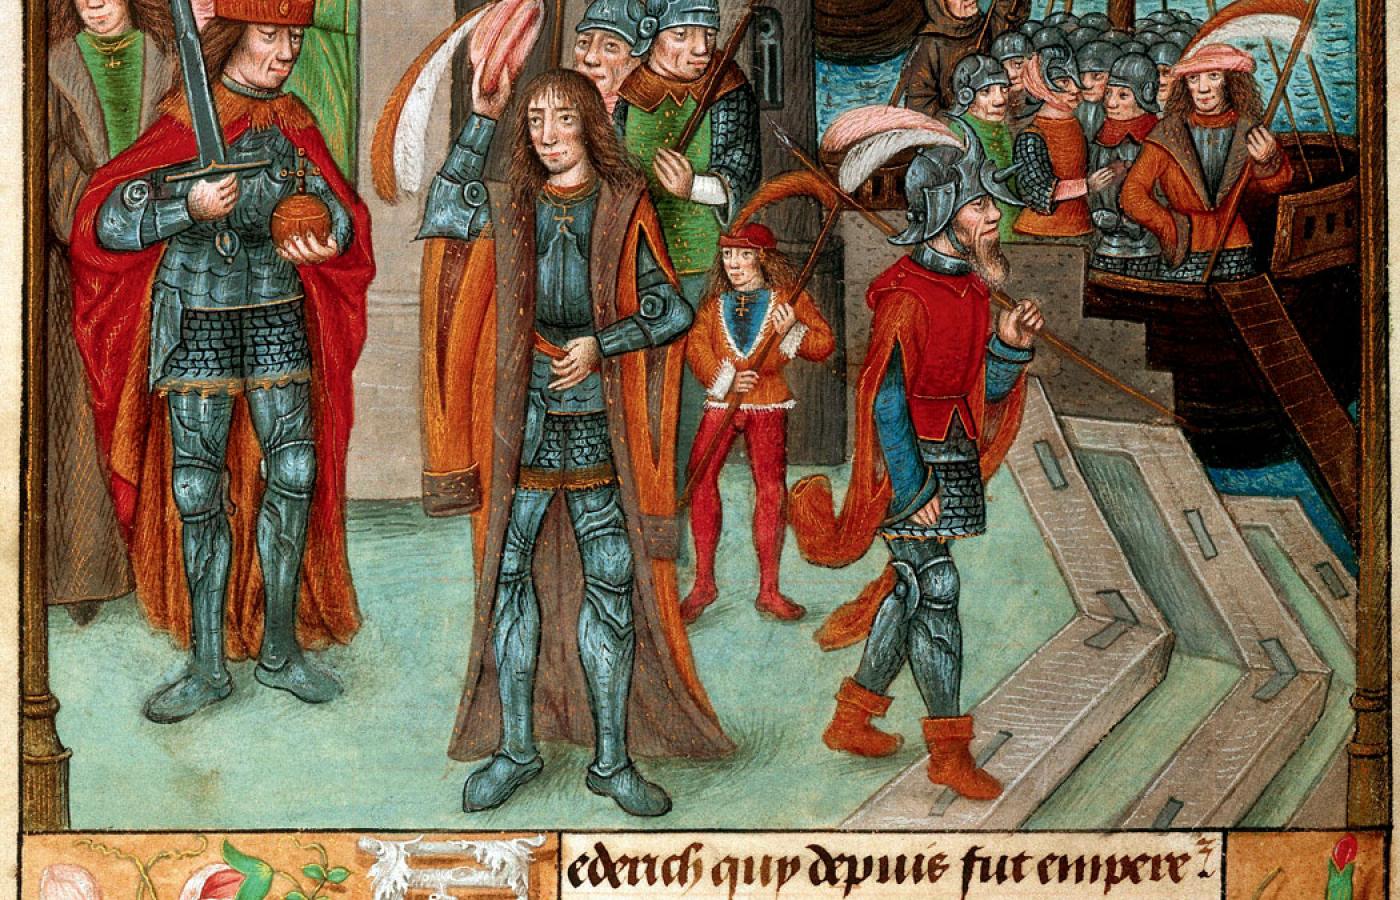 ederich quy depuis fut empere